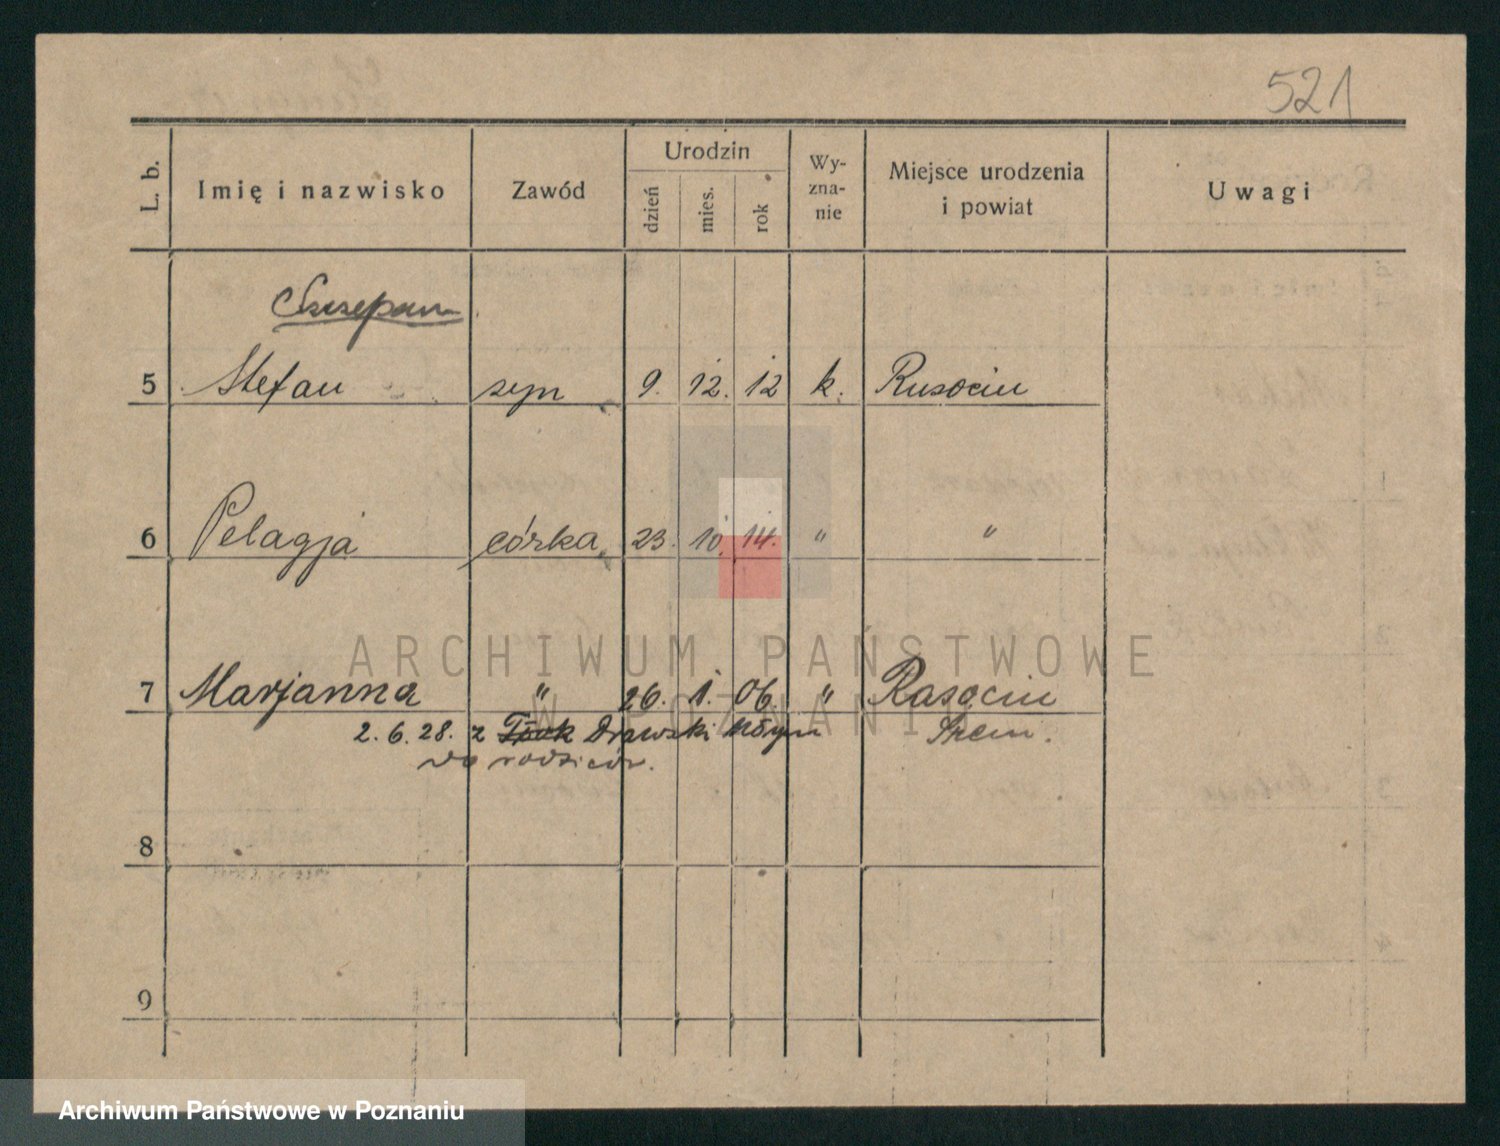 521
L. b. Imię i nazwisko Zawód Urodzin dzień mies. rok Wyznanie Miejsce urodzenia i powiat Uwagi
Szczepan
5 Stefan syn 9. 12. 12 k. Rusocin
6 Pelagja córka 23. 10. 14. " "
7 Marjanna " 26. 1. 06. " Rasocin
2.6.28. z Drawski Młyn Śrem.
do rodziców.
8
9
ARCHIWUM PAŃSTWOWE
W POZNANIU
Archiwum Państwowe w Poznaniu